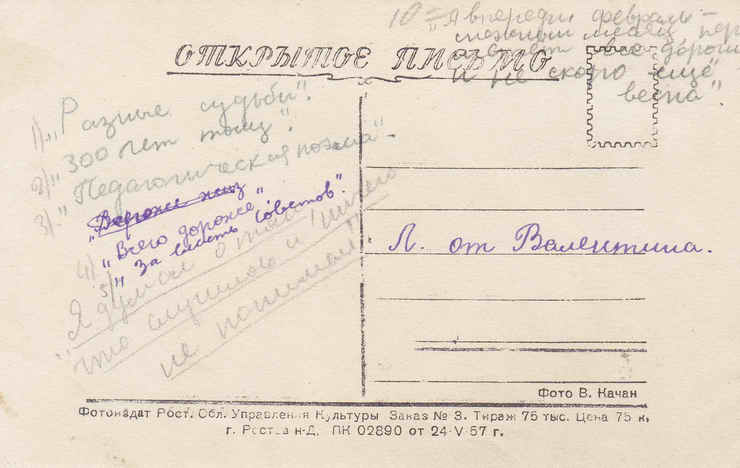 10 = "А впереди февраль –
ОТКРЫТОЕ ПИСЬМО
и не скоро ещё
весна"
1) "Разные судьбы".
2) "300 лет тому".
3) "Педагогическая поэма" –
"Дороже жиз
4) "Всего дороже"
5) "За власть Советов".
Я думал о том
что слушилов и ничего
не понимал"
Л. от Валентина.
Фото В. Качан
Фотоиздат Рост. Обл. Управления Культуры Заказ № 3. Тираж 75 тыс. Цена 75 к.
г. Ростов н-Д. ПК 02890 от 24-V-57 г.